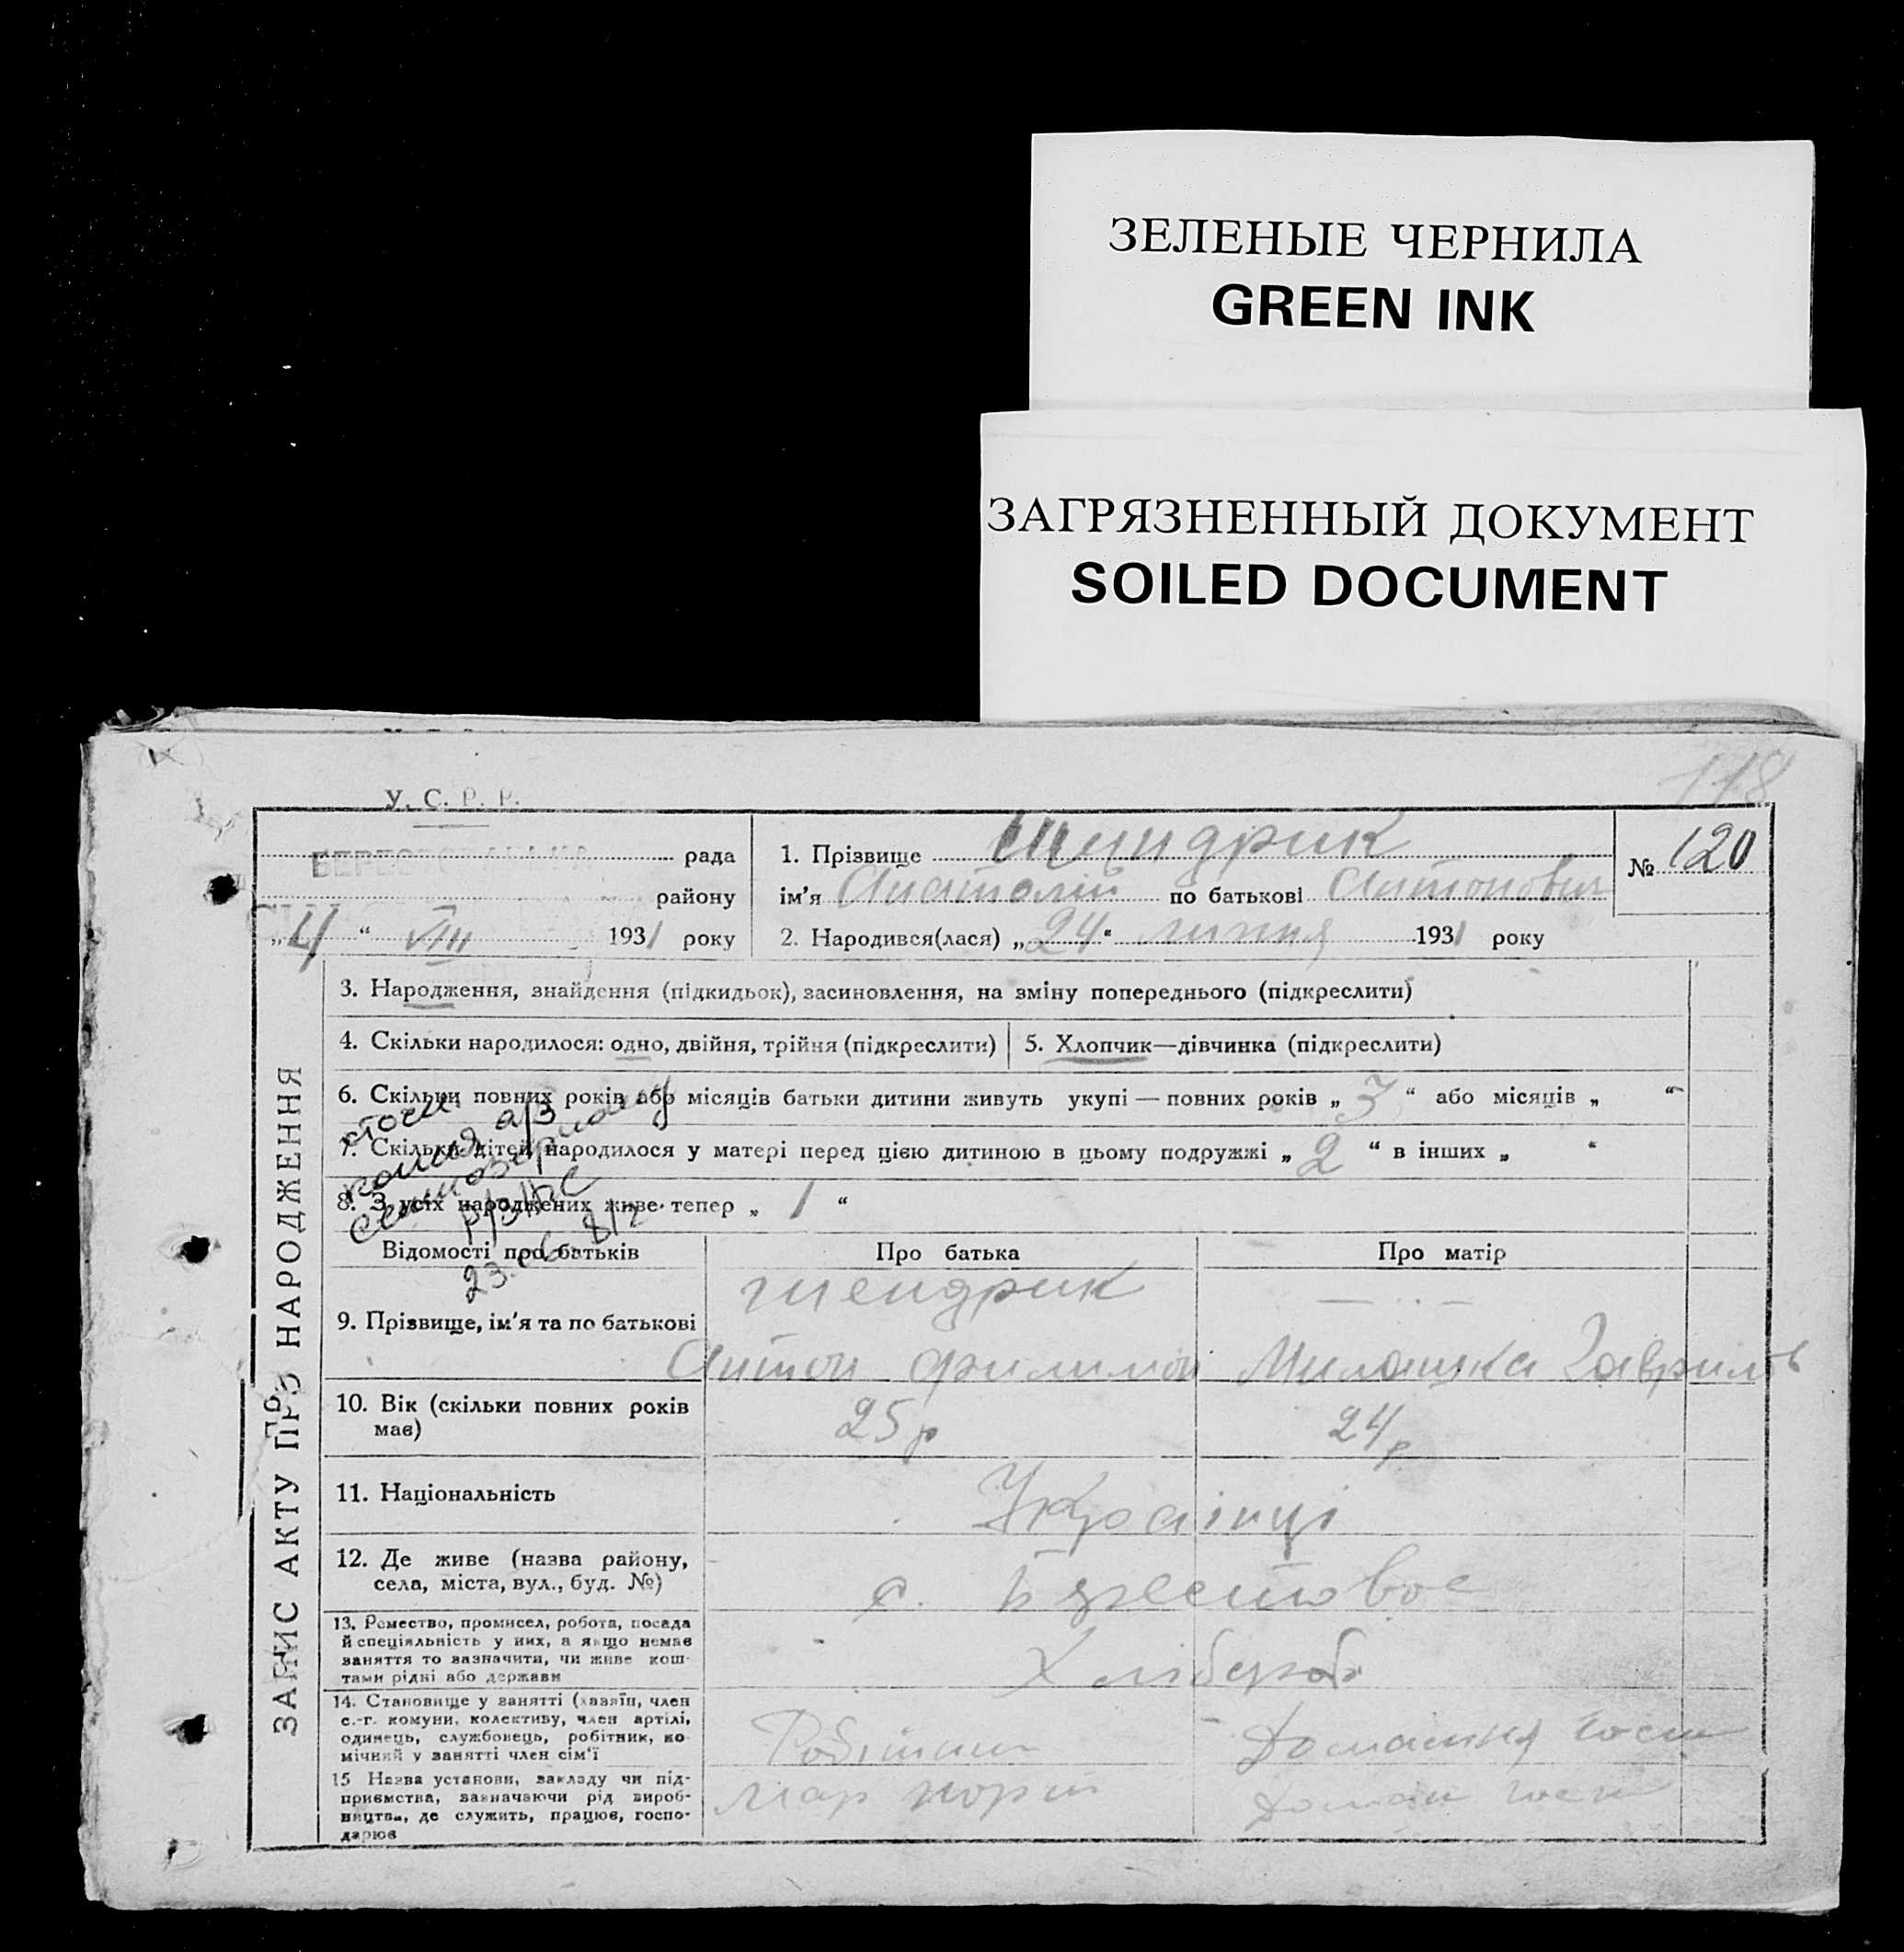 ЗЕЛЕНЫЕ ЧЕРНИЛА
GREEN INK
ЗАГРЯЗНЕННЫЙ ДОКУМЕНТ
SOILED DOCUMENT
118
У. С. Р. Р.
рада
району
„4“ VIII 1931 року
1. Прізвище Шиндрик
ім'я Анатолій по батькові Антонович
2. Народився(лася) „24“ липня 1931 року
№ 120
ЗАПИС АКТУ ПРО НАРОДЖЕННЯ
3. Народження, знайдення (підкидьок), засиновлення, на зміну попереднього (підкреслити)
4. Скільки народилося: одно, двійня, трійня (підкреслити)
5. Хлопчик—дівчинка (підкреслити)
6. Скільки повних років або місяців батьки дитини живуть укупі — повних років „3“ або місяців „ “
7. Скільки дітей народилося у матері перед цією дитиною в цьому подружжі „2“ в інших „ “
8. З усіх народжених живе тепер „1“
23.
Відомості про батьків
Про батька
Про матір
9. Прізвище, ім'я та по батькові
Шендрик
Антон Филимон
Милашка Гаврилов
10. Вік (скільки повних років має)
25 р
24 р
11. Національність
Українці
12. Де живе (назва району,
села, міста, вул., буд. №)
с.
13. Ремество, промисел, робота, посада
й спеціяльність у них, а якщо немає
заняття то зазначити, чи живе кош-
тами рідні або держави
Хлібороб
14. Становище у занятті (хазяїн, член
с.-г. комуни, колективу, член артілі,
одинець, службовець, робітник, по-
мічний у занятті член сім'ї
Робітник
Домашня госп
15 Назва установи, закладу чи під-
приємства, зазначаючи рід вироб-
ництва, де служить, працює, госпо-
дарює
Мар порт
Домаш госп